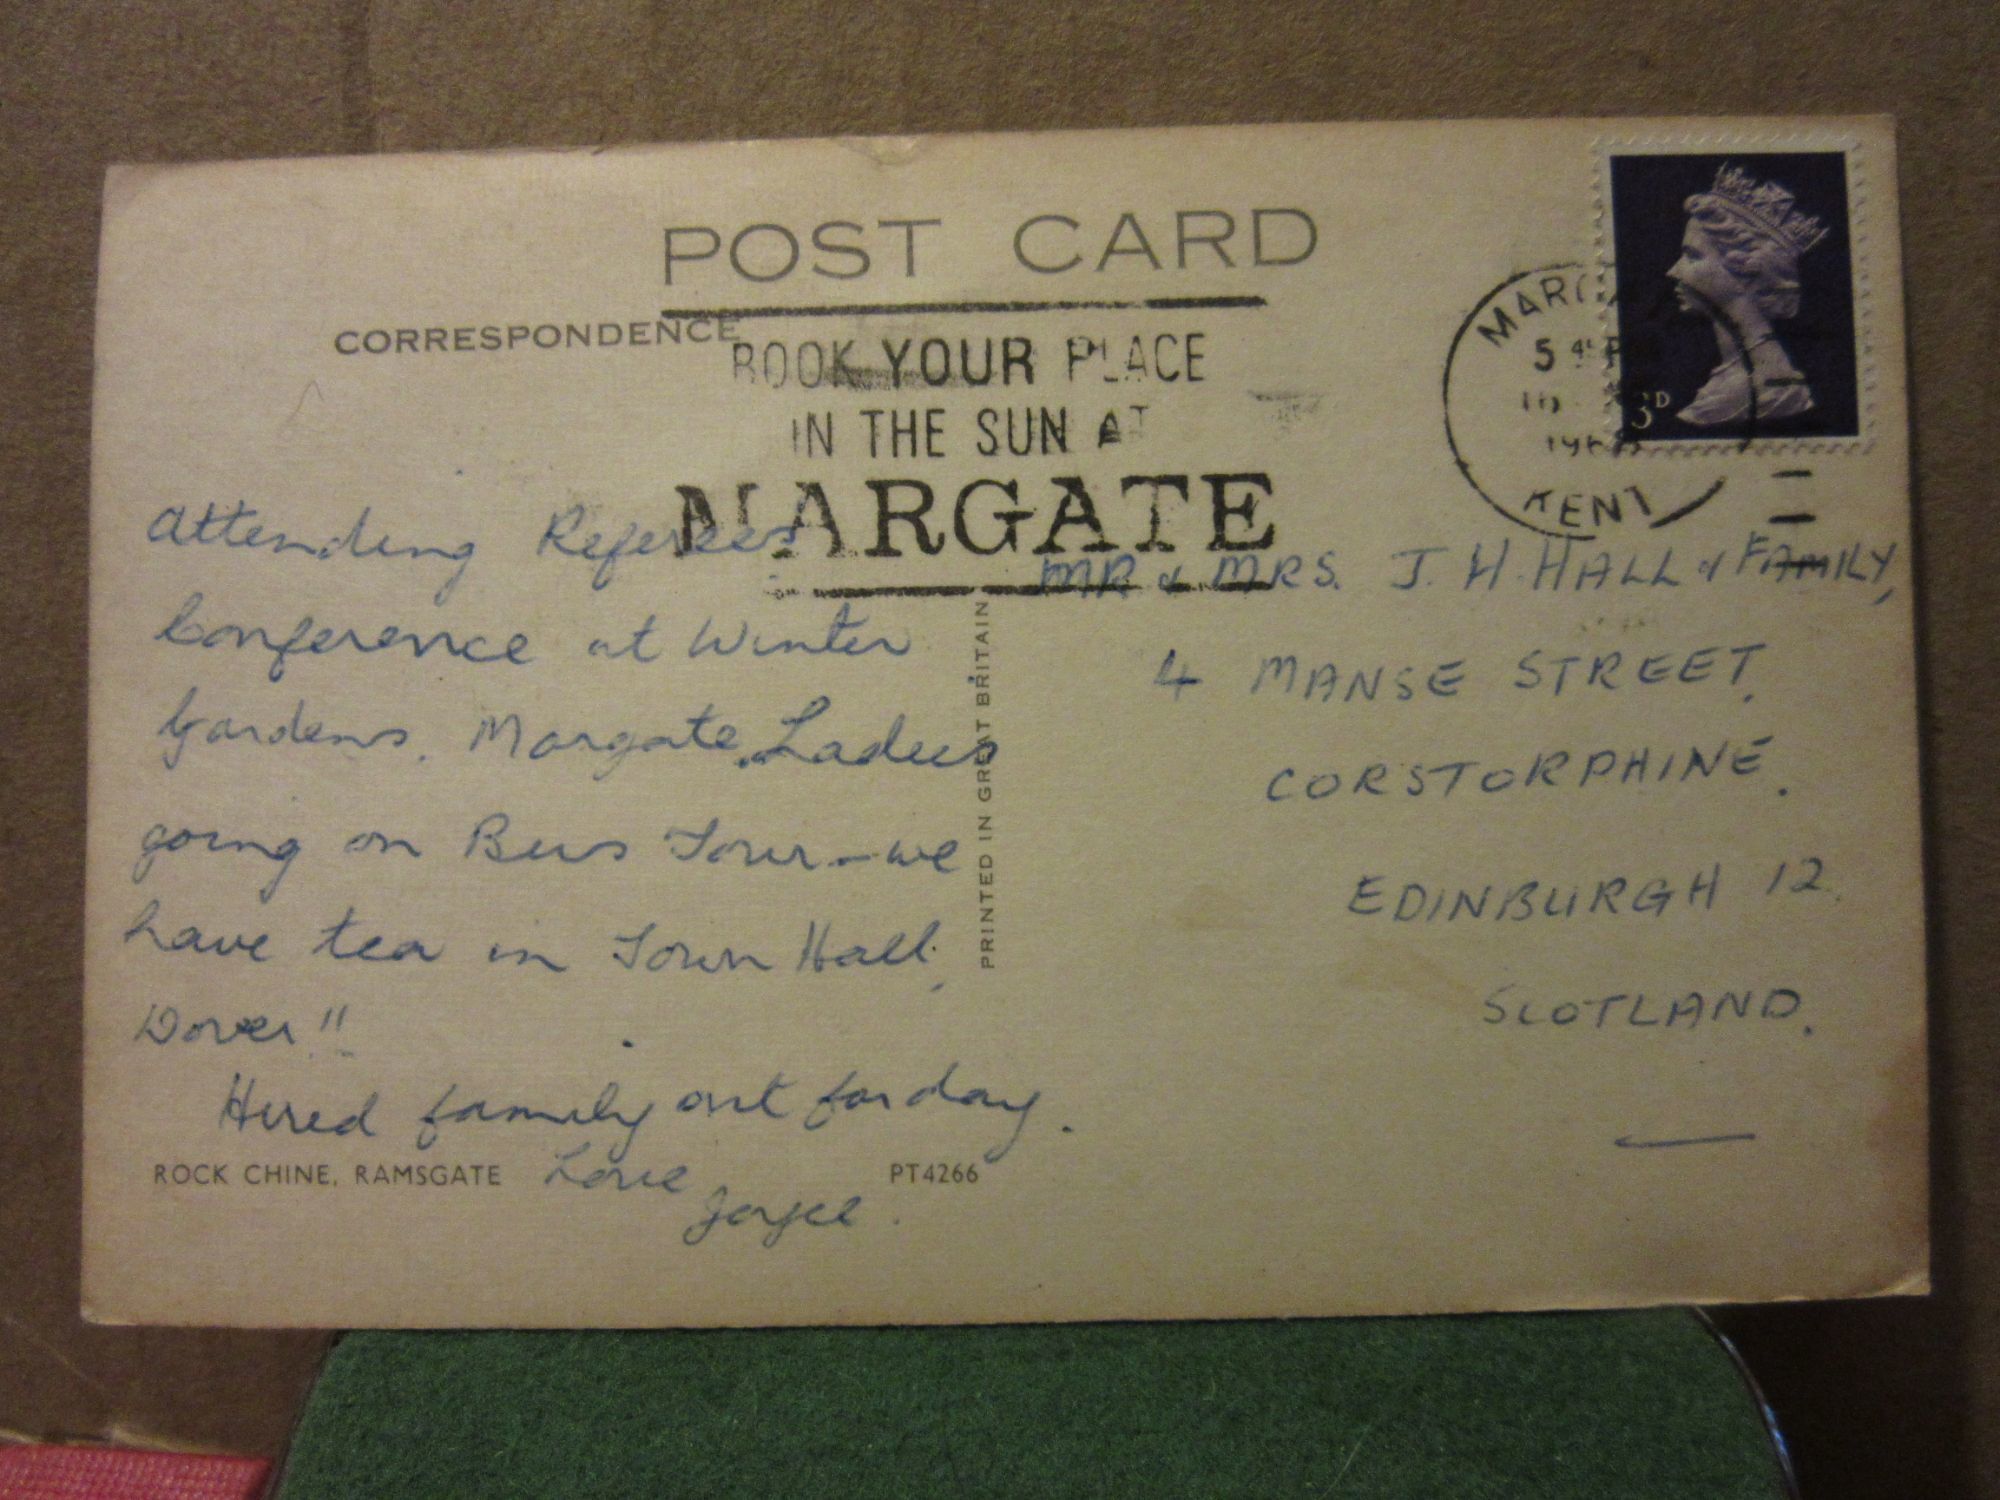 POST CARD
CORRESPONDENCE
BOOK YOUR PLACE
IN THE SUN AT
MARGATE
MARG
5 45 P
16
196
KENT
3D
Attending Referees
Conference at Winter
Gardens. Margate. Ladies
going on Bus Tour - we
have tea in Town Hall,
Dover!!
Hired family out for day.
Love
Joyce.
ROCK CHINE, RAMSGATE
PT4266
PRINTED IN GREAT BRITAIN
MR & MRS. J. H. HALL & FAMILY,
4 MANSE STREET.
CORSTORPHINE.
EDINBURGH 12.
SCOTLAND.